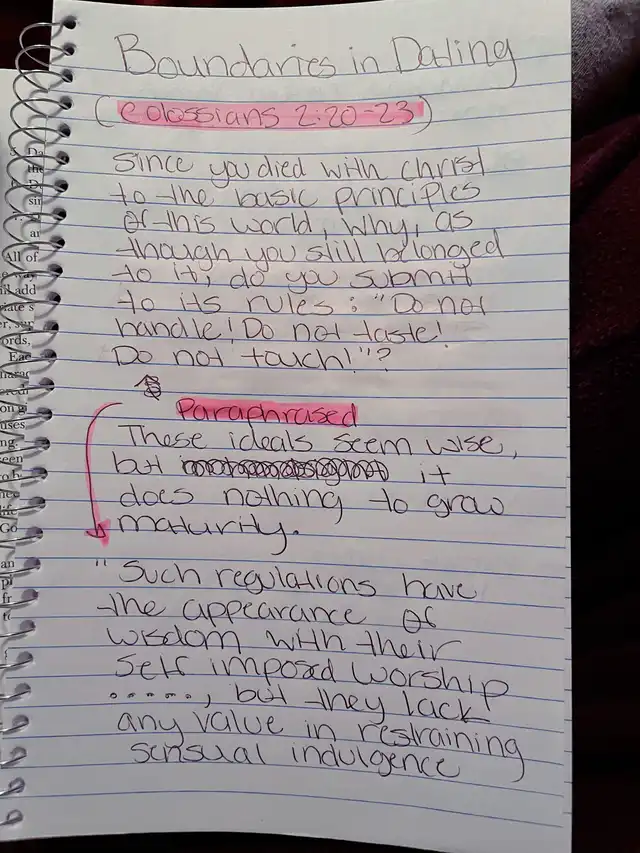 Boundaries in Dating
(Colossians 2:20-23)
Since you died with Christ
to the basic principles
of this world, why, as
though you still belonged
to it, do you submit
to its rules: "Do not
handle! Do not taste!
Do not touch!"?
Paraphrased
These ideals seem wise,
but it
does nothing to grow
maturity.
" Such regulations have
the appearance of
wisdom with their
self imposed worship
....., but they lack
any value in restraining
sensual indulgence
All of
add
ords,
uses
ng.
een
Go
an
fr